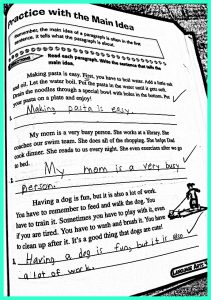 Practice with the Main Idea
Remember, the main idea of a paragraph is often in the first
sentence. It tells what the paragraph is about.
Read each paragraph. Write the sentence that tells the
main idea.
Making pasta is easy. First, you have to boil water. Add a little salt
and oil. Let the water boil. Put the pasta in the water until it gets soft.
Drain the noodles through a special bowl with holes in the bottom. Put
your pasta on a plate and enjoy!
1. Making pasta is easy
My mom is a very busy person. She works at a library. She
coaches our swim team. She does all of the shopping. She helps Dad
cook dinner. She reads to us every night. She even exercises after we go
to bed.
2. My mom is a very busy
person.
Having a dog is fun, but it is also a lot of work.
You have to remember to feed and walk the dog. You
have to train it. Sometimes you have to play with it, even
if you are tired. You have to wash and brush it. You have
to clean up after it. It's a good thing that dogs are cute!
3. Having a dog is fun, but it is also
a lot of work.
Language Arts